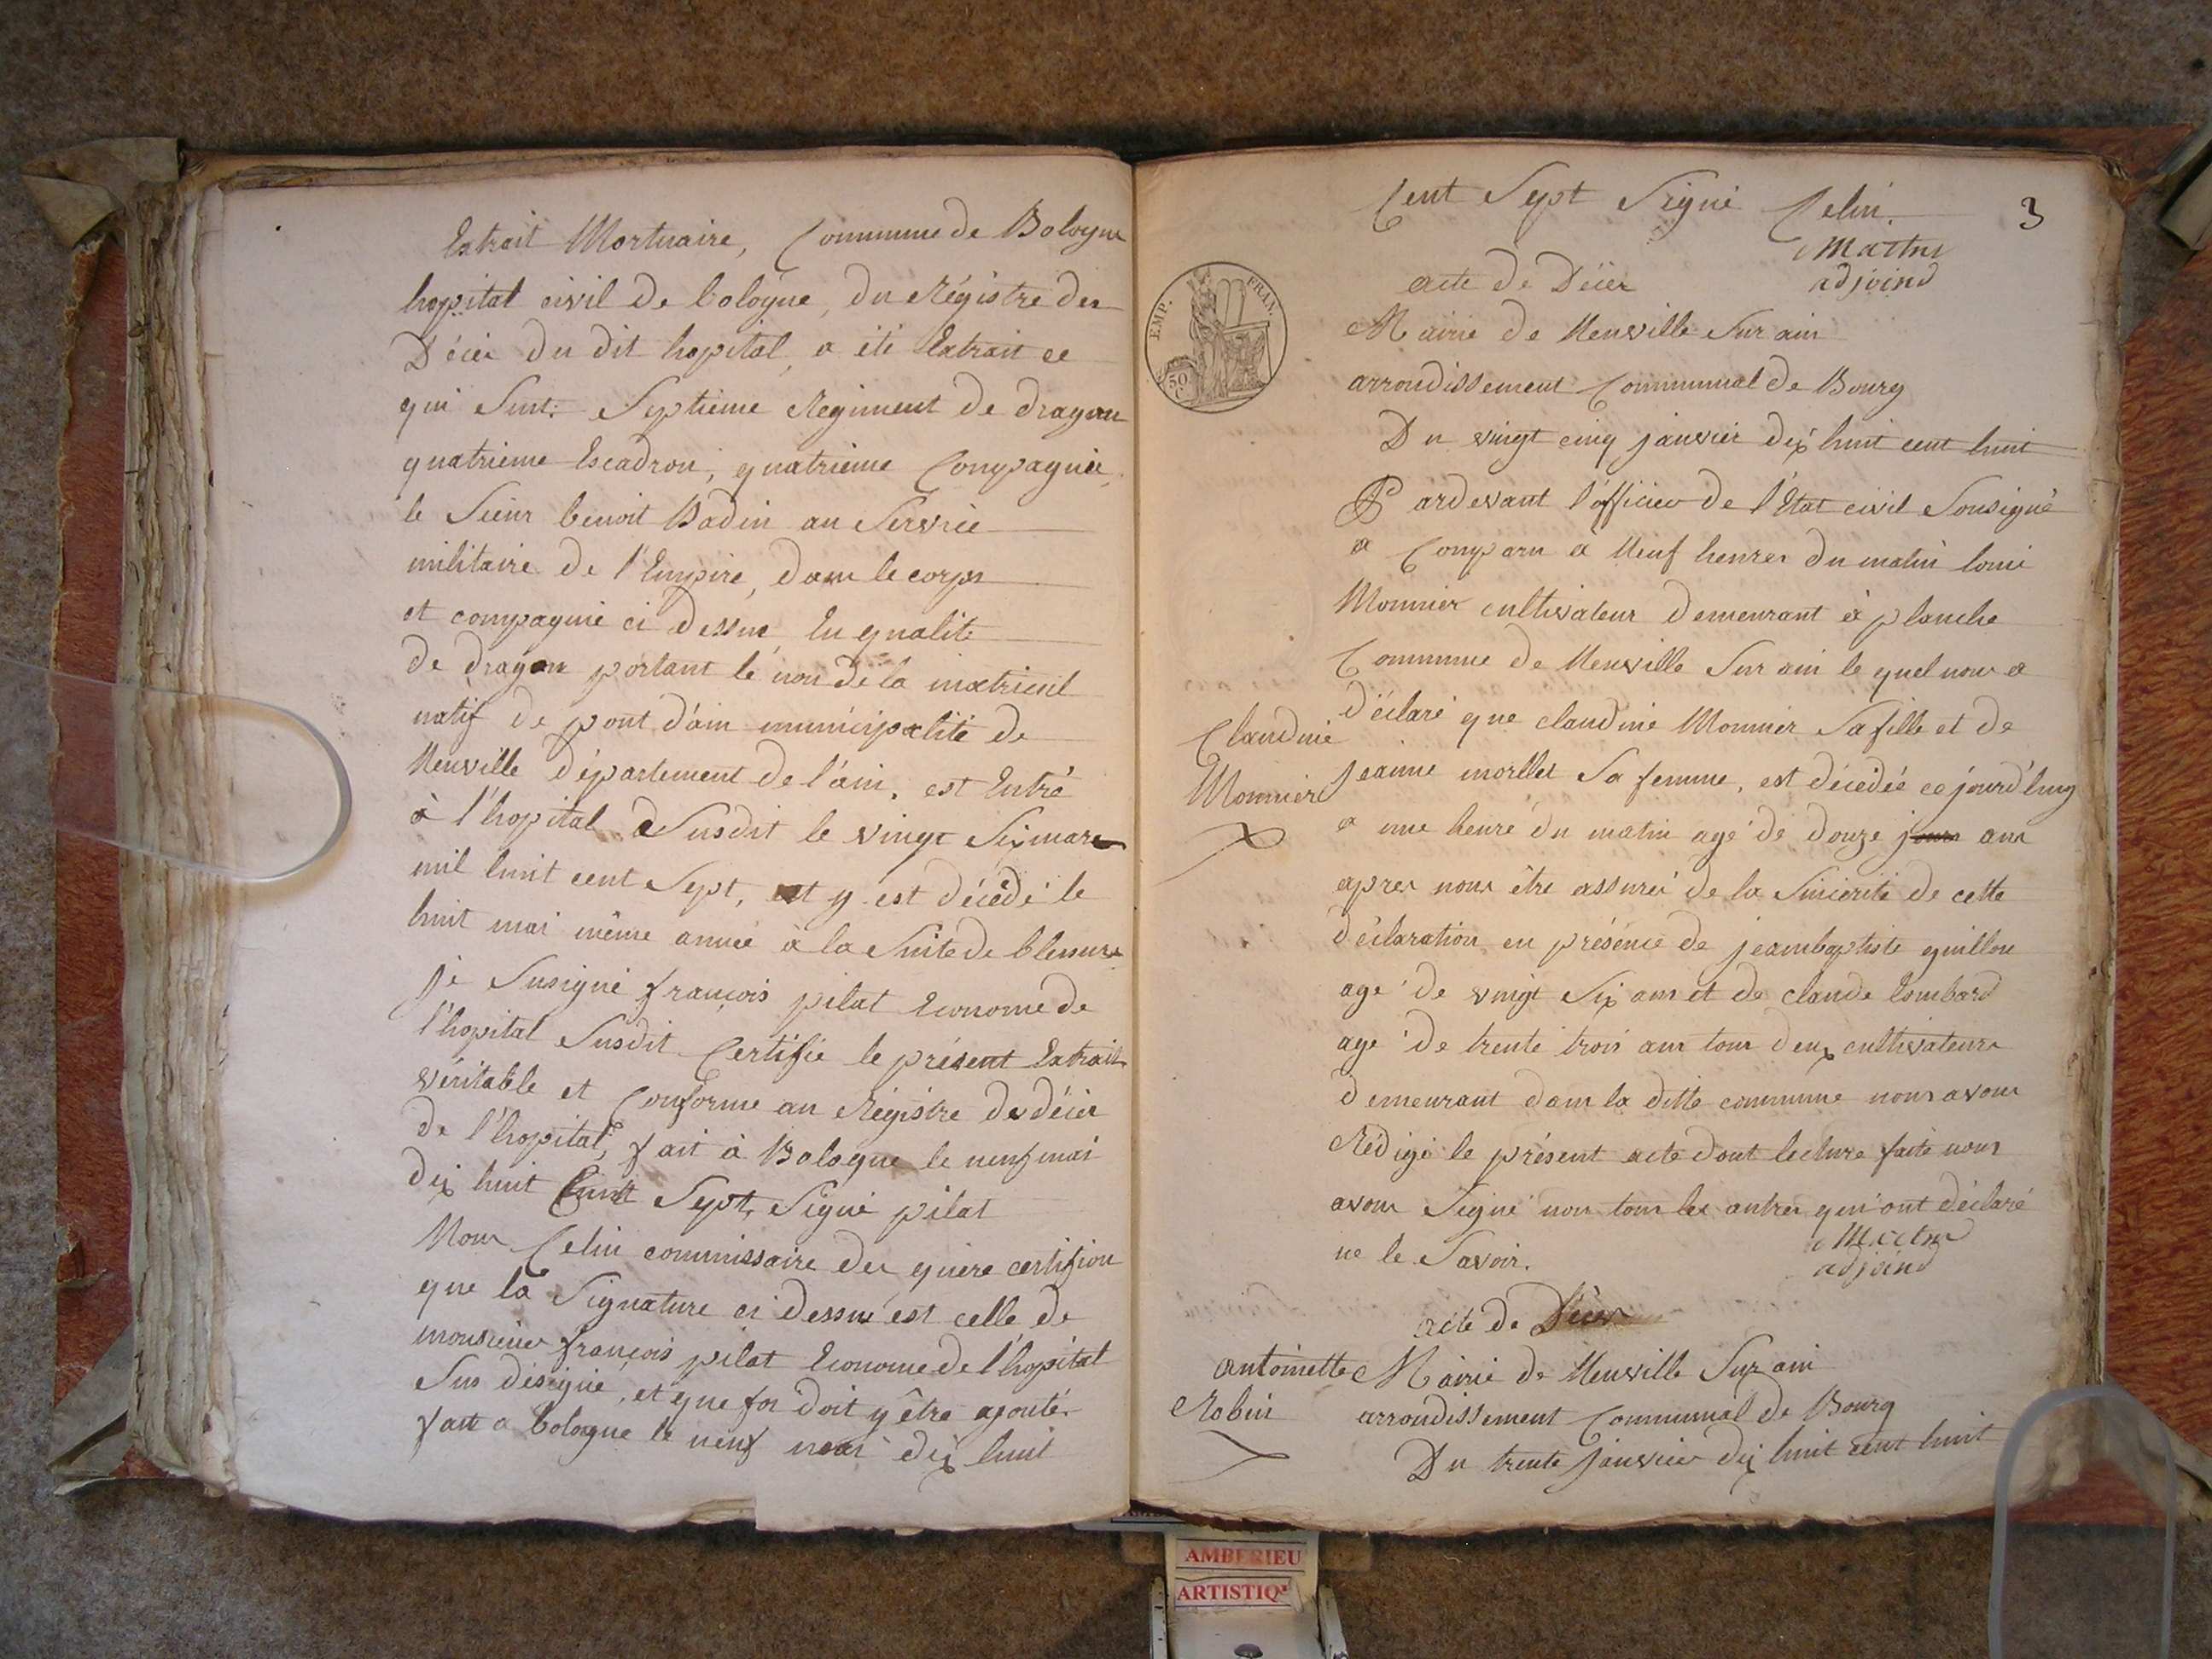 Extrait Mortuaire, Commune de Bologne
hopital civil de bologne, du Régistre des
Décès du dit hopital, a été Extrait ce
qui Suit. Septieme Regiment de dragon
quatrieme Escadron, quatrieme Compagnie,
le Sieur benoit Badin au Service
militaire de l'Empire, dans le corps
et compagnie ci dessus, En qualité
de dragon portant le non de la matricul
natif de pont d'ain municipalité de
Neuville département de l'ain, est Entré
à l'hopital Susdit le vingt Six mars
mil huit cent Sept, et y est décédé le
huit mai même année à la Suite de blessure
je Susigné françois pilat Econome de
l'hopital Susdit Certifie le présent Extrait
véritable et Conforme au Régistre de décès
de l'hopital, fait à Bologne le neuf mai
dix huit Cent Sept, Signé pilat
Nous Celin commissaire des guere certifion
que la Signature ci dessus est celle de
monsieur françois pilat Econome de l'hopital
Sus désigné, et que foi doit y être ajouté.
fait a bologne le neuf mai dix huit
3
Cent Sept Signé Celin.
adjoind
EMP. FRAN.
50
C
acte de Décès
Mairie de Neuville Sur ain
arrondissement Communal de Bourg
Du vingt cinq janvier dix huit cent huit
Pardevant l'officier de l'Etat civil Sousigné
a Comparu a Neuf heures du matin louis
Monnier cultivateur demeurant à planche
Commune de Neuville Sur ain le quel nous a
déclaré que claudine Monnier Sa fille et de
Claudine
Monnier
jeanne morllet Sa femme, est décédée ce jourd'huy
a une heure du matin agé de douze jours ans
apres nous être assurés de la Sincerité de cette
déclaration en présence de jeanbaptiste guillon
agé de vingt Six ans et de claude lombard
agé de trente trois ans tous deux cultivateurs
demeurant dans la ditte commune nous avons
Rédigé le présent acte dont lecture faite nous
avons Signé non tous les autres qui ont déclaré
ne le Savoir.
adjoind
acte de Décès
antoinette
Robin
Mairie de Neuville Sur ain
arrondissement Communal de Bourg
Du trente janvier dix huit cent huit
AMBERIEU
ARTISTIQ